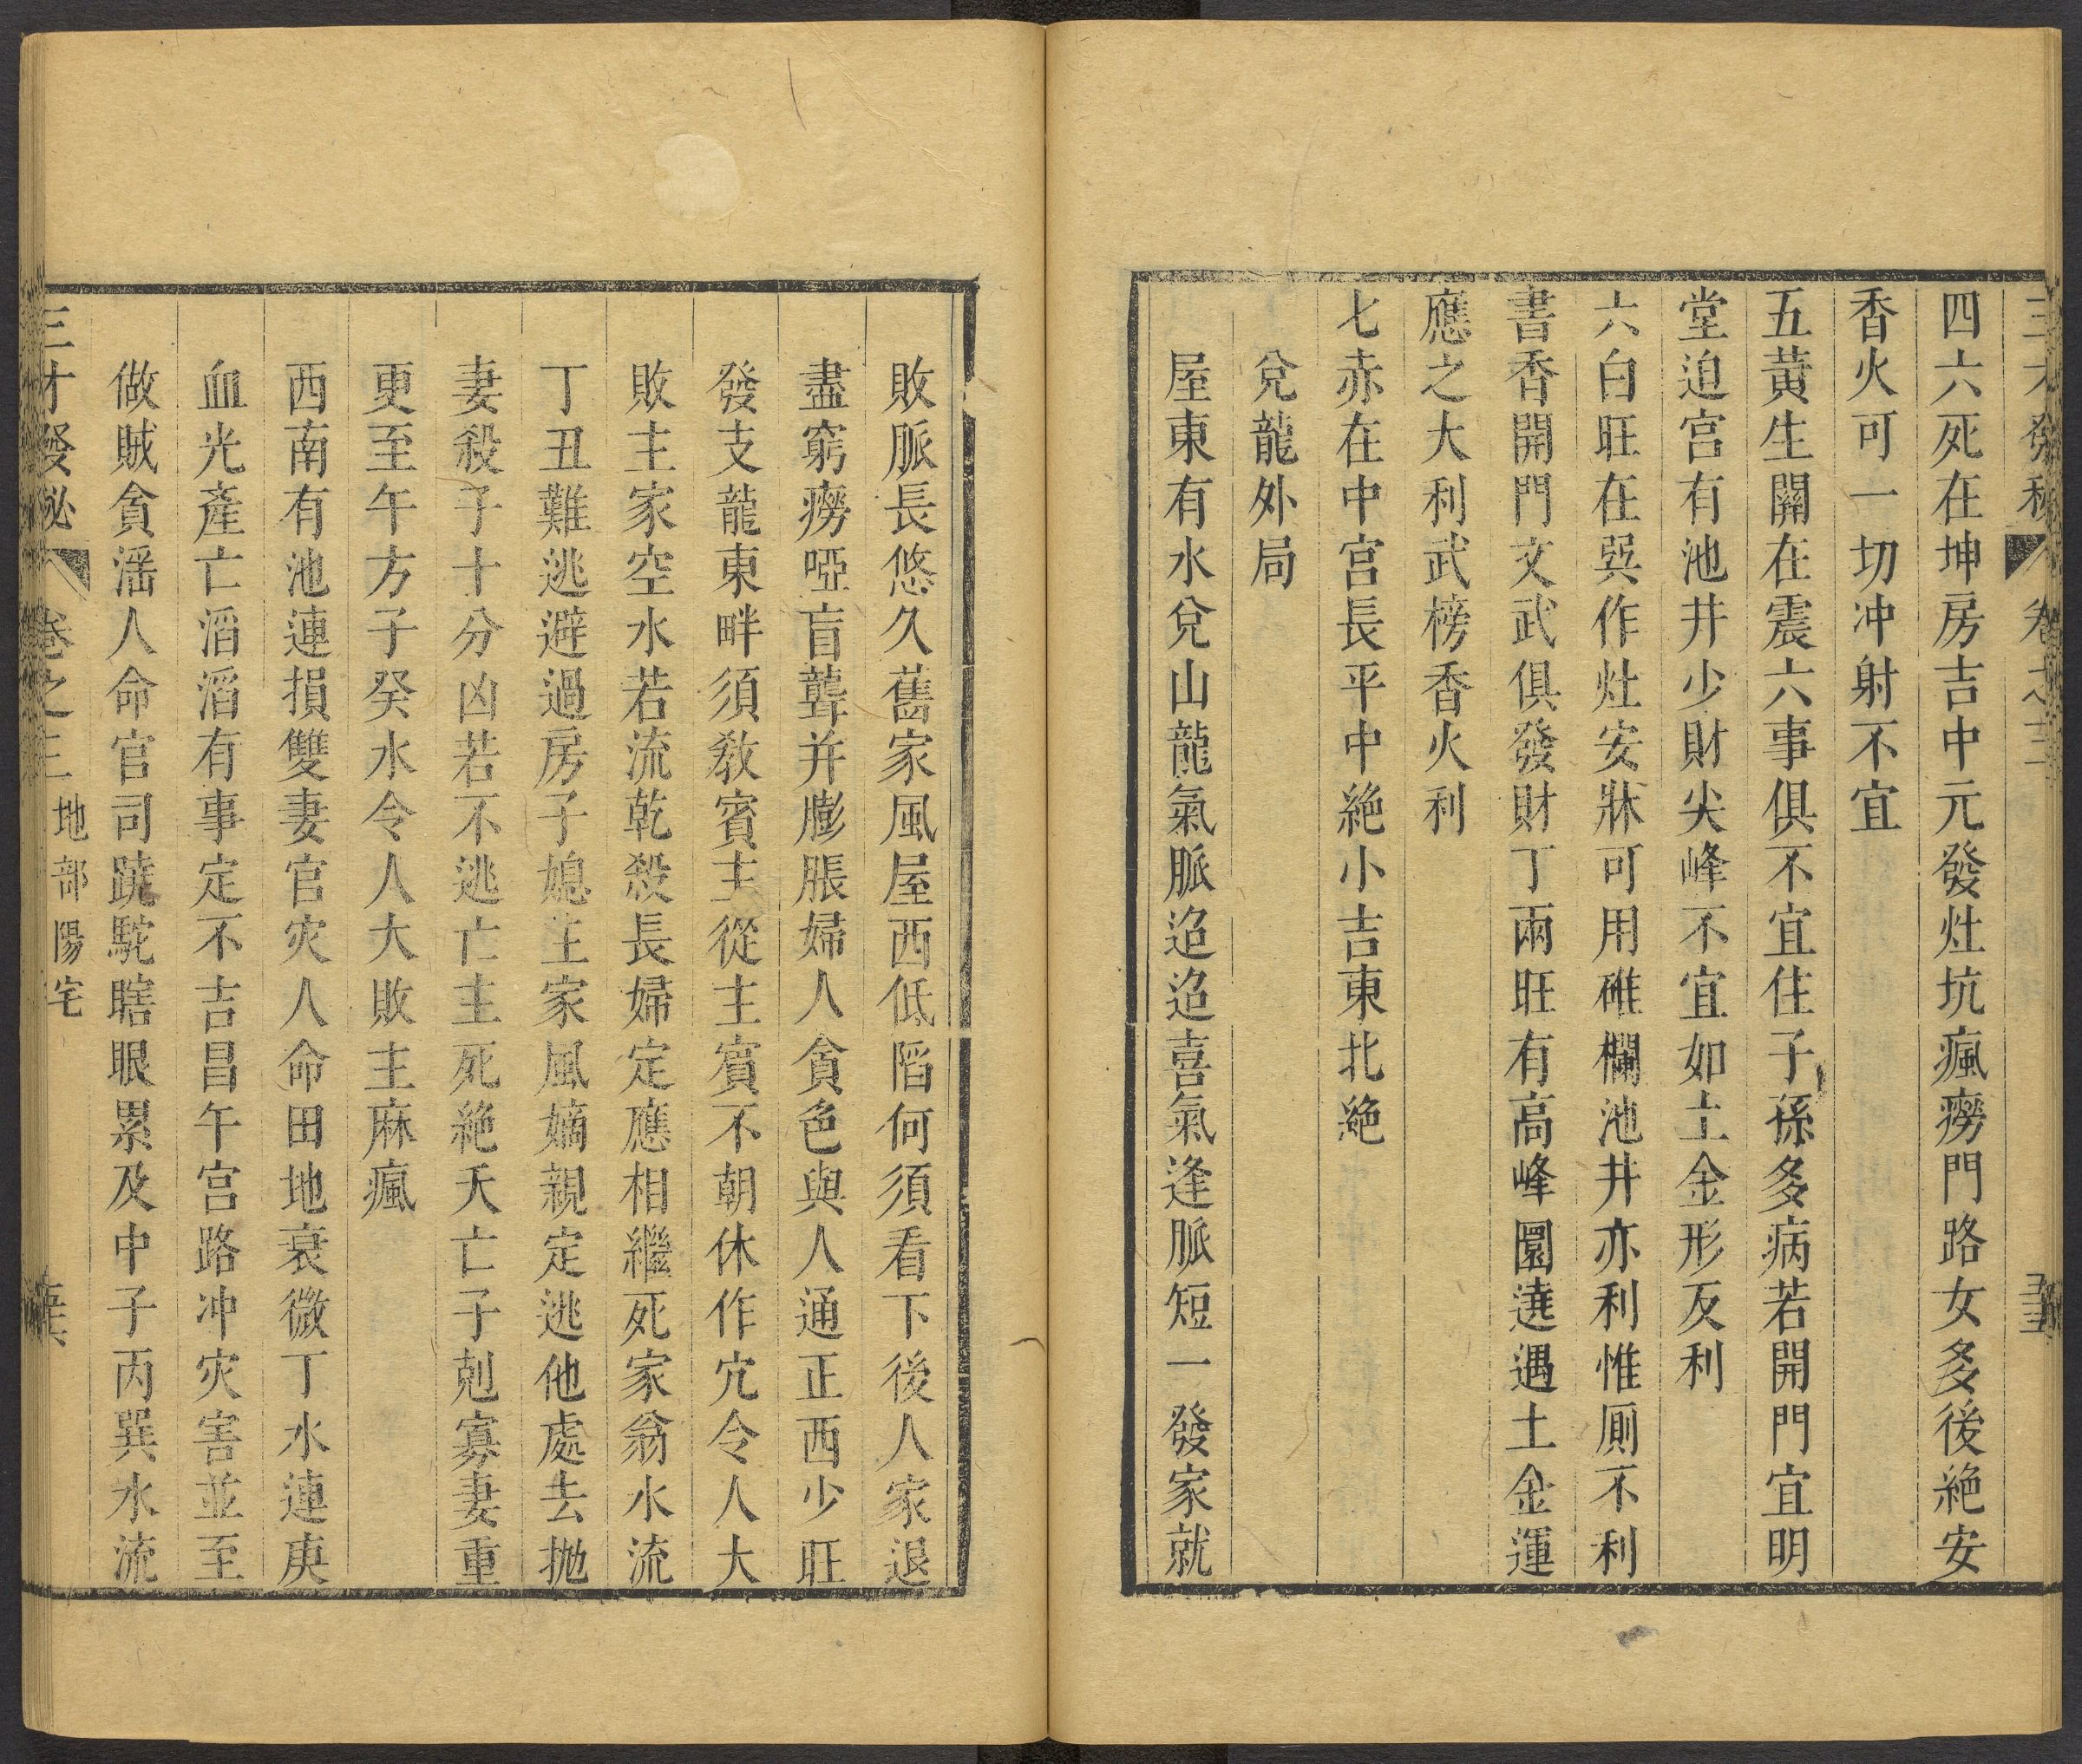 四六死在坤房吉中元發灶坑瘋癆門路女多後絕安
香火可一切冲射不宜
五黃生關在震六事俱不宜住子孫多病若開門宜明
堂迫宮有池井少財尖峰不宜如土金形反利
六白旺在巽作灶安牀可用碓欄池井亦利惟厠不利
書香開門文武俱發財丁兩旺有高峰圍遶遇土金運
應之大利武榜香火利
七赤在中宮長平中絕小吉東北絕
兌龍外局
屋東有水兌山龍氣脈迢迢喜氣逢脈短一發家就
敗脈長悠久舊家風屋西低陷何須看下後人家退
盡窮癆啞盲聾并膨脹婦人貪色與人通正西少旺
發支龍東畔須教賓主從主賓不朝休作穴令人大
敗主家空水若流乾殺長婦定應相繼死家翁水流
丁丑難逃避過房子媳主家風嫡親定逃他處去拋
妻殺子十分凶若不逃亡主死絕夭亡子剋寡妻重
更至午方子癸水令人大敗主麻瘋
西南有池連損雙妻官灾人命田地衰微丁水連庚
血光產亡滔滔有事定不吉昌午宮路冲灾害並至
做賊貪滛人命官司蹺駝瞎眼累及中子丙巽水流
三才發秘 卷之三 地部陽宅